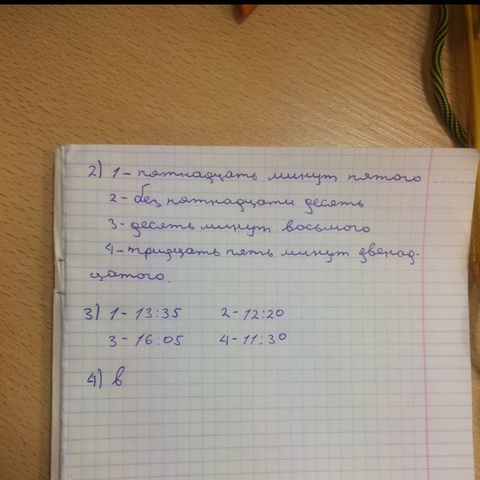 2) 1 - пятнадцать минут пятого
2 - без пятнадцати десять
3 - десять минут восьмого
4 - тридцать пять минут двенад-
цатого.
3) 1 - 13:35 2 - 12:20
3 - 16:05 4 - 11:30
4) в